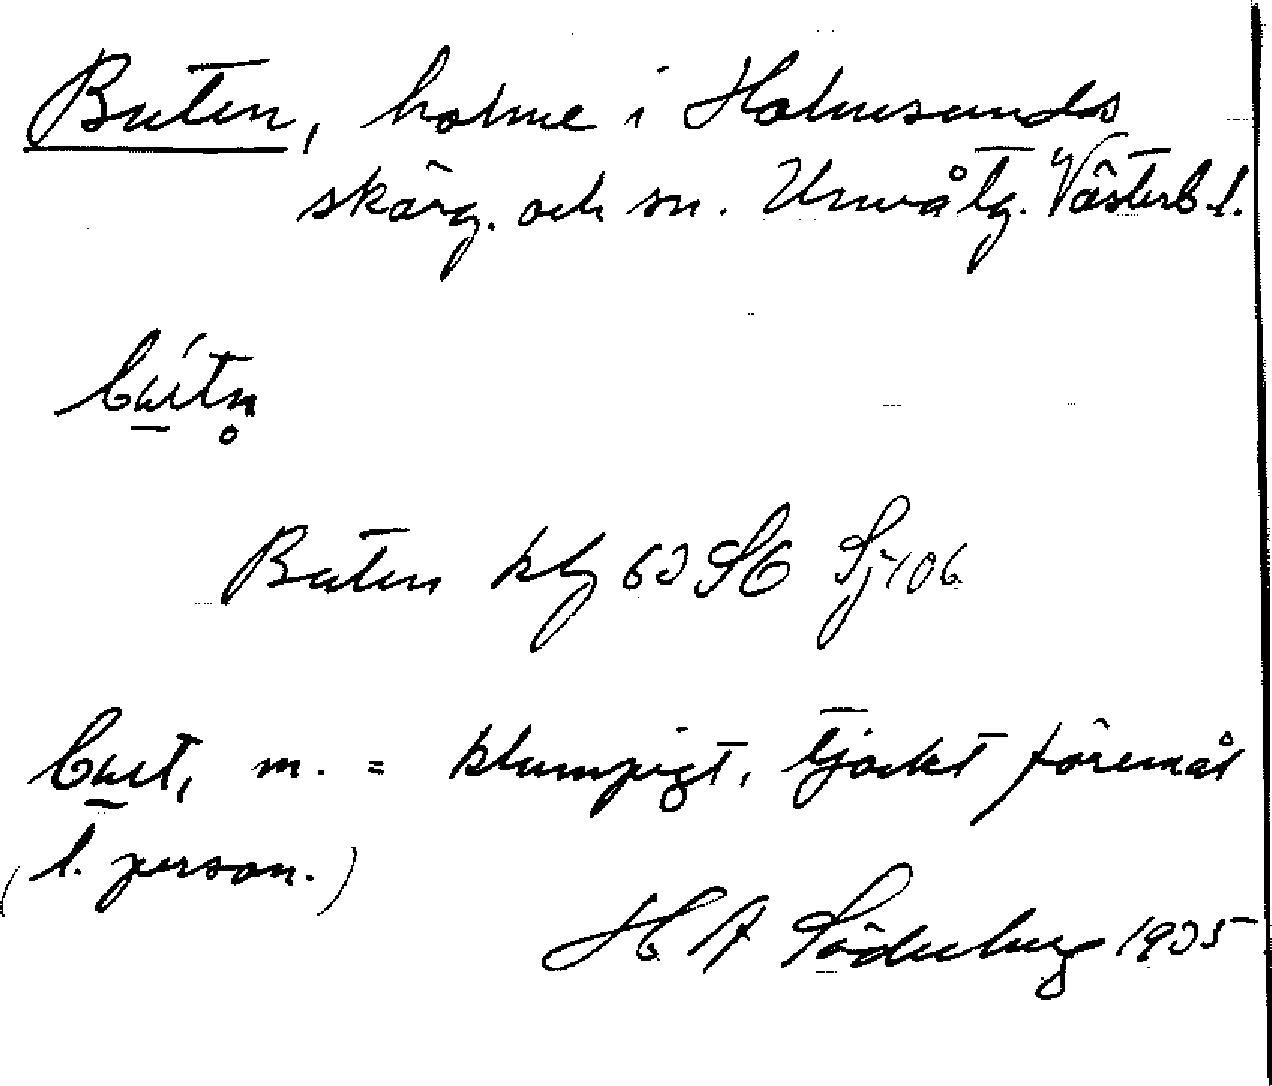 Buten, holme i Holmsunds
skärg. och sn. Umeå tg. Västerb. l.
bu̱´tn̥
Buten kbl 63 SO Sj 106
bu̱t, m. = klumpigt, tjockt föremål
(l. person.)
H A Söderberg 1935